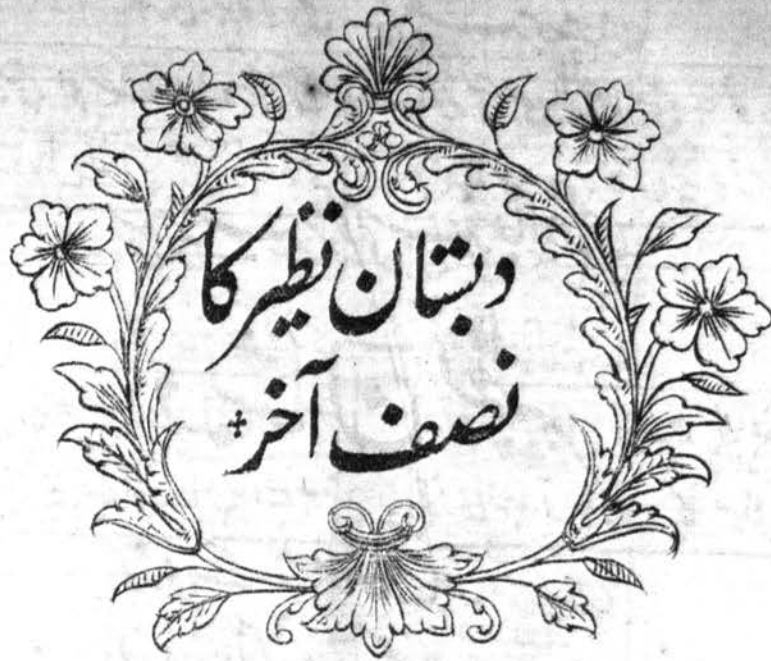 دبستان نظیر کا
نصف آخر